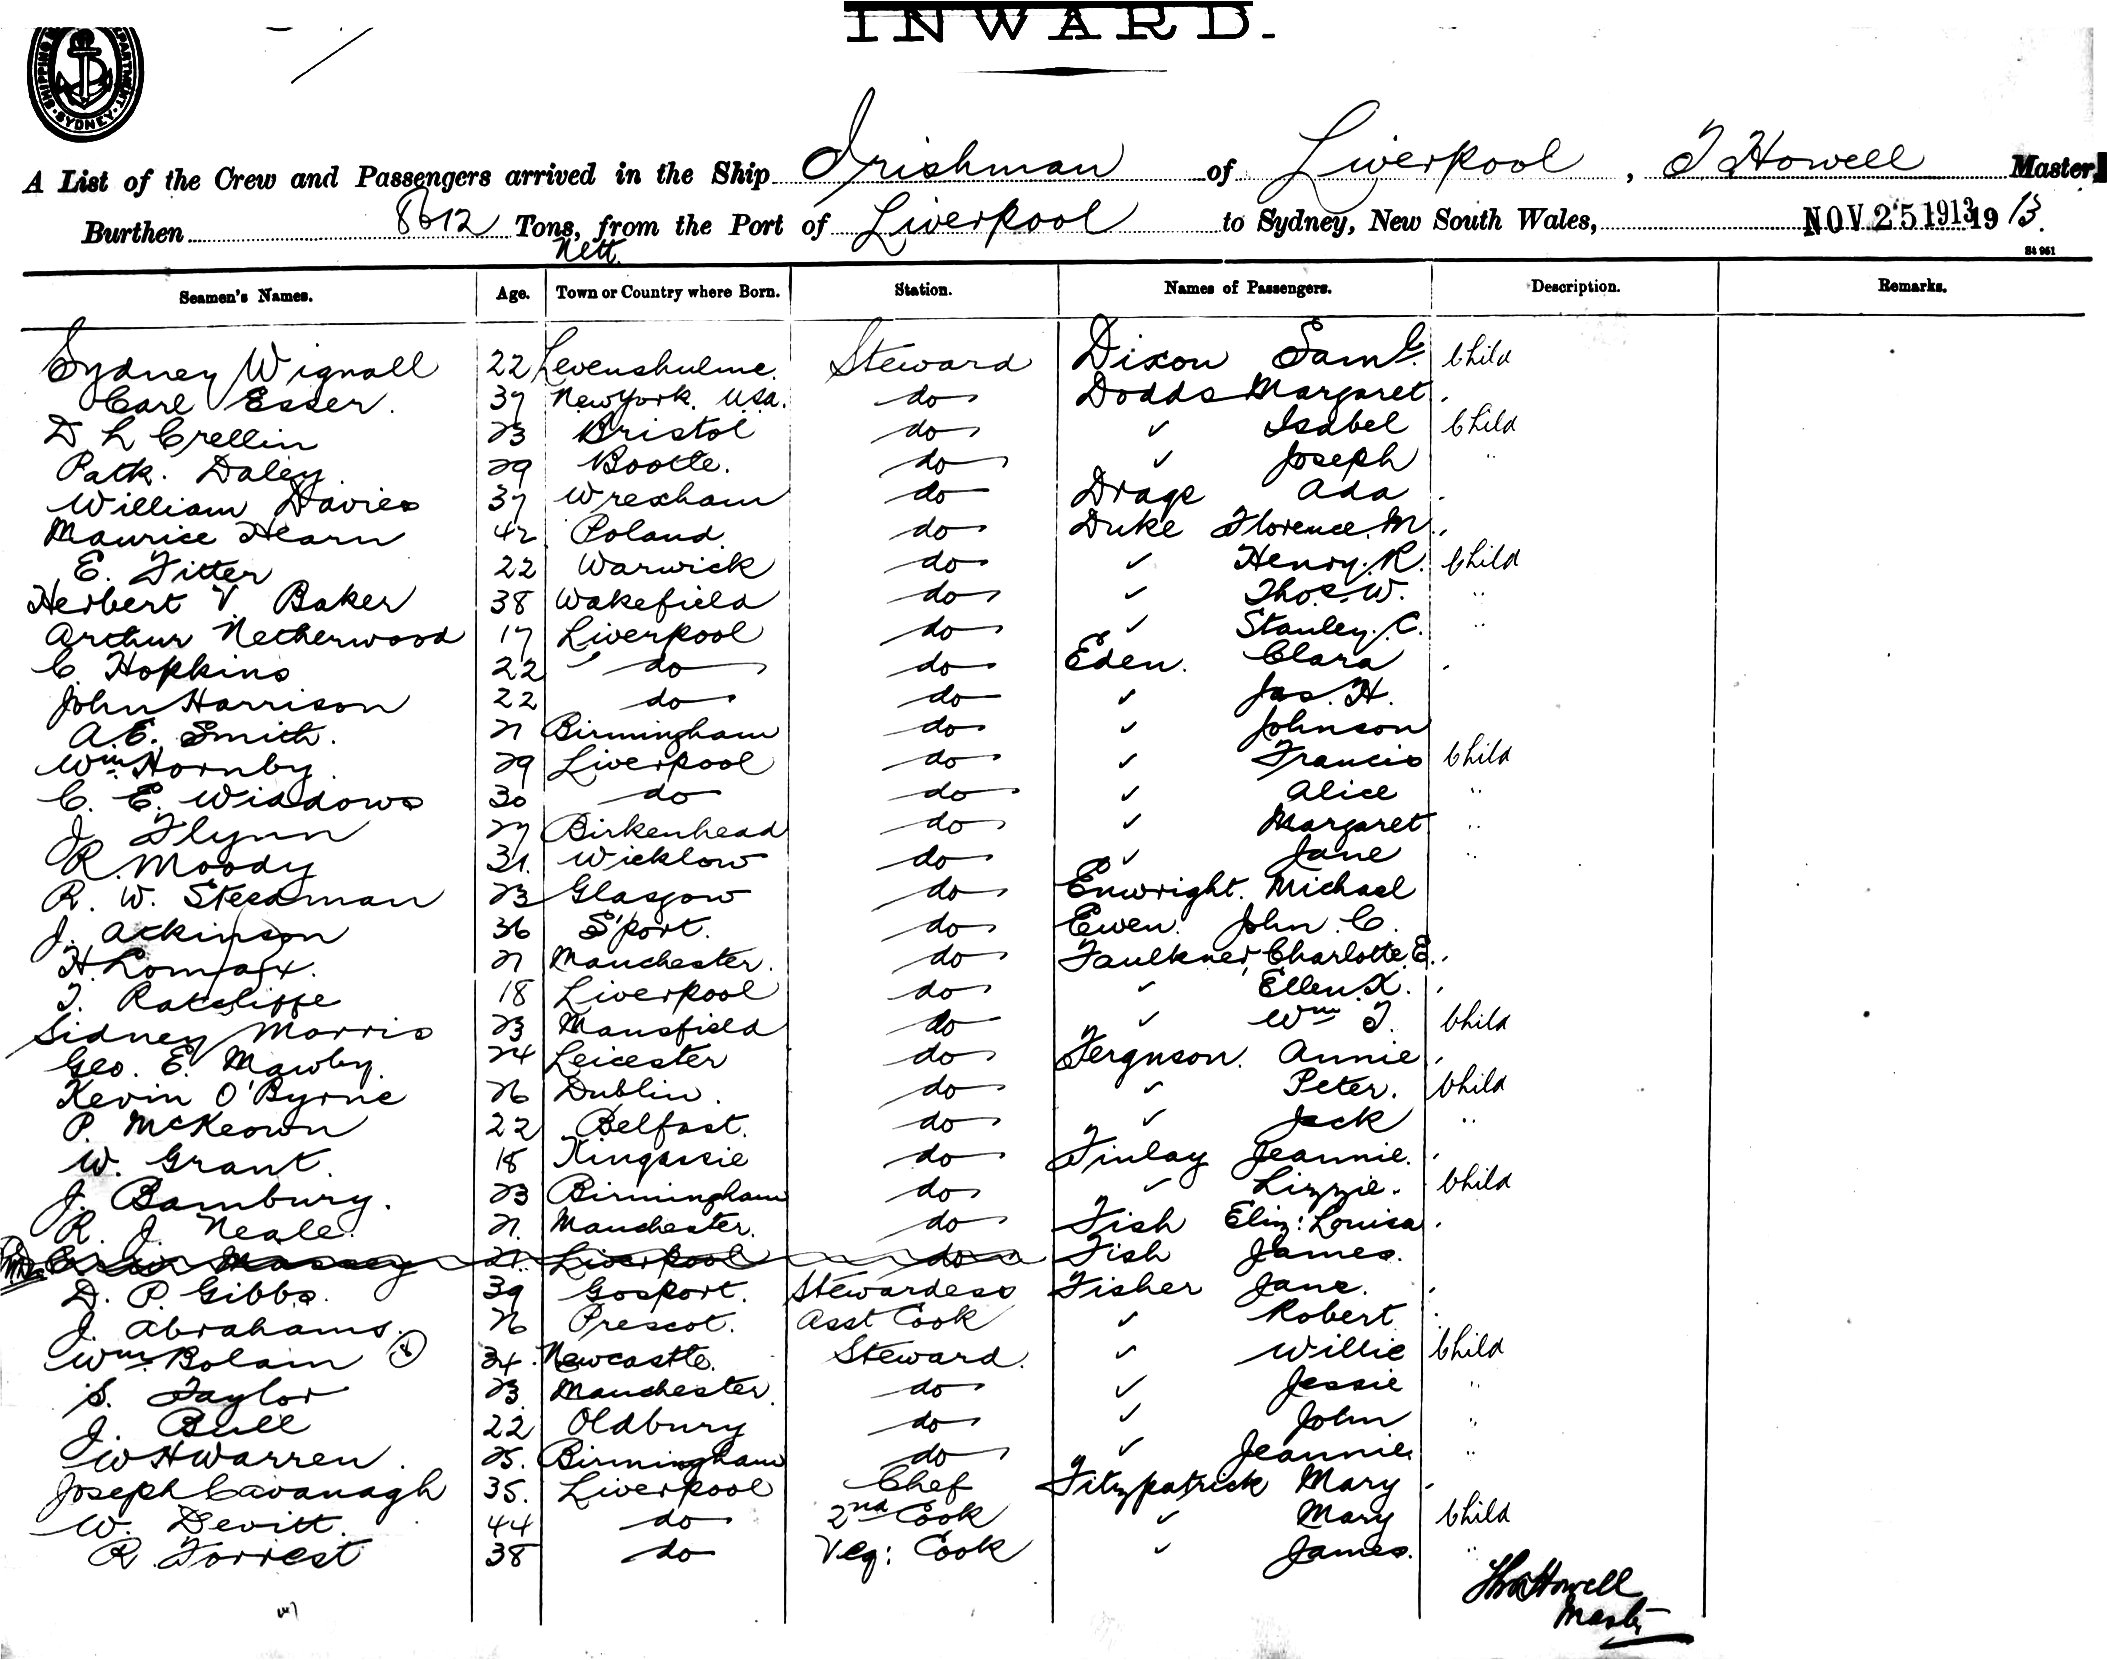 INWARD.
SYDNEY
A List of the Crew and Passengers arrived in the Ship Irishman of Liverpool, T Howell Master,
Burthen 8612 Tons, from the Port of Liverpool to Sydney, New South Wales, NOV 25 1913 1913.
Nett.
St 961
Seamen's Names. Age. Town or Country where Born. Station. Names of Passengers. Description. Remarks.
Sydney Wignall 22 Levenshulme. Steward Dixon Saml. Child
Carl Esser. 37 New York. USA. do Dodds Margaret.
D L Crellin 23 Bristol do ✓ Isabel Child
Patk. Daley 29 Bootle. do ✓ Joseph "
William Davies 37 Wrexham do Drage Ada.
Maurice Hearn 42 Poland. do Duke Florence. M.
E. Fitter 22 Warwick do ✓ Henry. R. Child
Herbert V Baker 38 Wakefield do ✓ Thos. W. "
Arthur Netherwood 17 Liverpool do ✓ Stanley. C. "
C. Hopkins 22 do do Eden. Clara.
John Harrison 22 do do ✓ Jas. H.
A. E. Smith. 21 Birmingham do ✓ Johnson
Wm Hornby. 29 Liverpool do ✓ Francis Child
C. E. Widdows 30 do do ✓ Alice "
J. Flynn 27 Birkenhead do ✓ Margaret "
R. Moody 31. Wicklow do ✓ Jane "
R. W. Steedman 23 Glasgow do Enwright. Michael
J. Atkinson 36 S'port. do Ewen. John. C.
H. Lomax. 21 Manchester. do Faulkner, Charlotte. E.
T. Ratcliffe 18 Liverpool do ✓ Ellen.
Sidney Morris 23 Mansfield do ✓ Wm T. Child
Geo. E. Mawby. 24 Leicester do Ferguson. Annie.
Kevin O'Byrne 26 Dublin. do ✓ Peter. Child
P. McKeown 22 Belfast. do ✓ Jack "
W. Grant. 18 Kingussie do Finlay Jeannie.
J. Bambury. 23 Birmingham do ✓ Lizzie. Child
R. J. Neale. 21. Manchester. do Fish Eliz: Louisa.
Massey 21. Liverpool do Fish James.
D. P. Gibbs. 39 Gosport. Stewardess Fisher Jane.
J. Abrahams. 26 Prescot. Asst Cook ✓ Robert.
Wm Bolam 34. Newcastle. Steward. ✓ Willie Child
S. Taylor 23. Manchester. do ✓ Jessie "
J. Bull 22 Oldbury do ✓ John "
W H Warren. 25. Birmingham do ✓ Jeannie. "
Joseph Cavanagh 35. Liverpool Chef Fitzpatrick Mary.
W. Devitt. 44 do 2nd Cook ✓ Mary Child
R Forrest 38 do Veg: Cook ✓ James. "
Thos Howell
Master